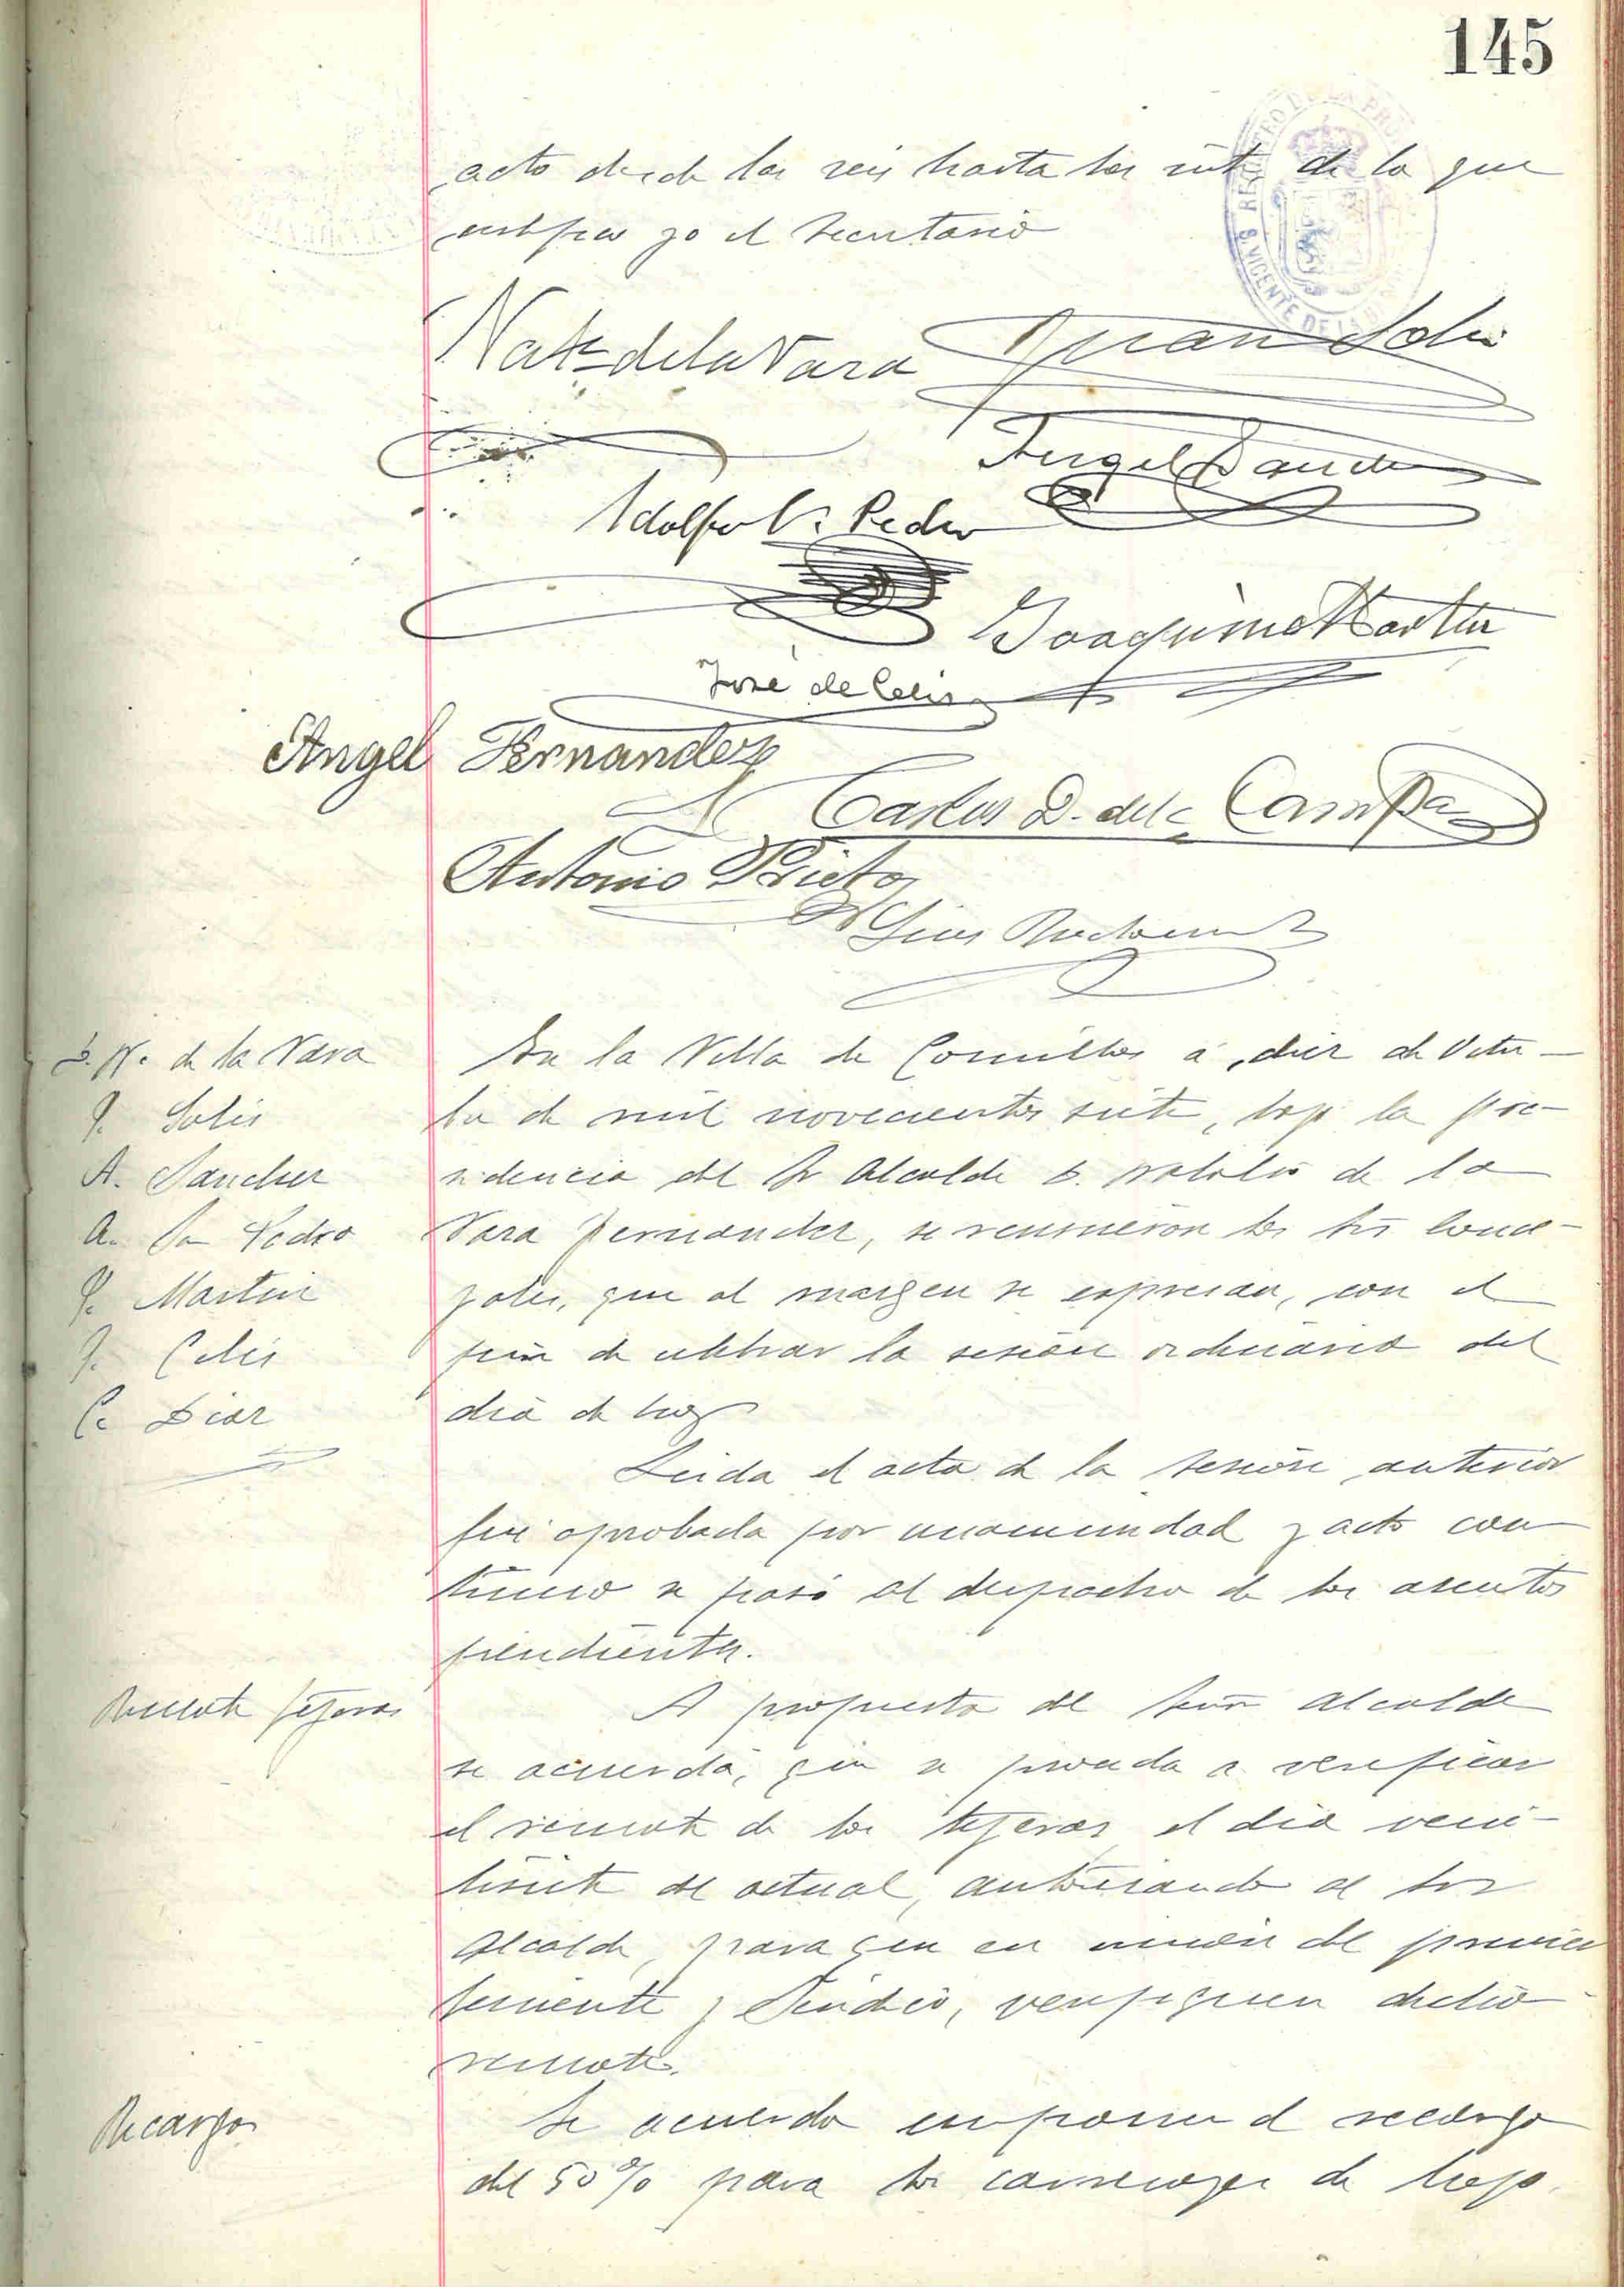 145
acto desde las seis hasta las siete de lo que
certifico yo el Secretario
Nat. de la Vara Juan Solis
Angel Sanchez
Adolfo S. Pedro
Joaquin Martin
José de Celis
Angel Fernandez
Carlos D. de la Campa
Antonio Prieto
D. N. de la Vara
J. Solis
A. Sanchez
A. San Pedro
J. Martin
J. Celis
C. Diaz
En la Villa de Comillas á diez de Octu-
bre de mil novecientos siete, bajo la pre-
sidencia del Sr Alcalde D. Natalio de la
Vara Fernandez, se reunieron los Srs Conce-
jales, que al margen se expresan, con el
fin de celebrar la sesión ordinaria del
dia de hoy
Leida el acta de la sesión anterior
fue aprobada por unanimidad y acto con
tinuo se pasó al despacho de los asuntos
pendientes.
Remate tejeras
A propuesta del Señor Alcalde
se acuerda, que se proceda a verificar
el remate de las tejeras el dia vein-
tisiete del actual, autorizando al Sor
Alcalde, para que en union del primer
teniente y Sindico, verifiquen dicho
remate.
Recargo
Se acuerda imponer el recargo
del 50% para los carruages de lujo.